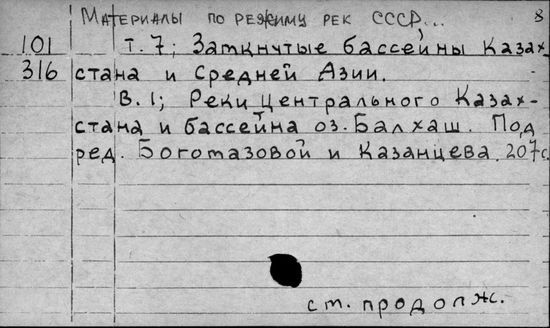 Материалы по режиму рек СССР... 8
101 Т. 7; Замкнутые бассейны Казах-
316 стана и Средней Азии.
В. 1; Реки Центрального Казах-
стана и бассейна оз. Балхаш. Под
ред. Богомазовой и Казанцева. 207с.
см. продолж.